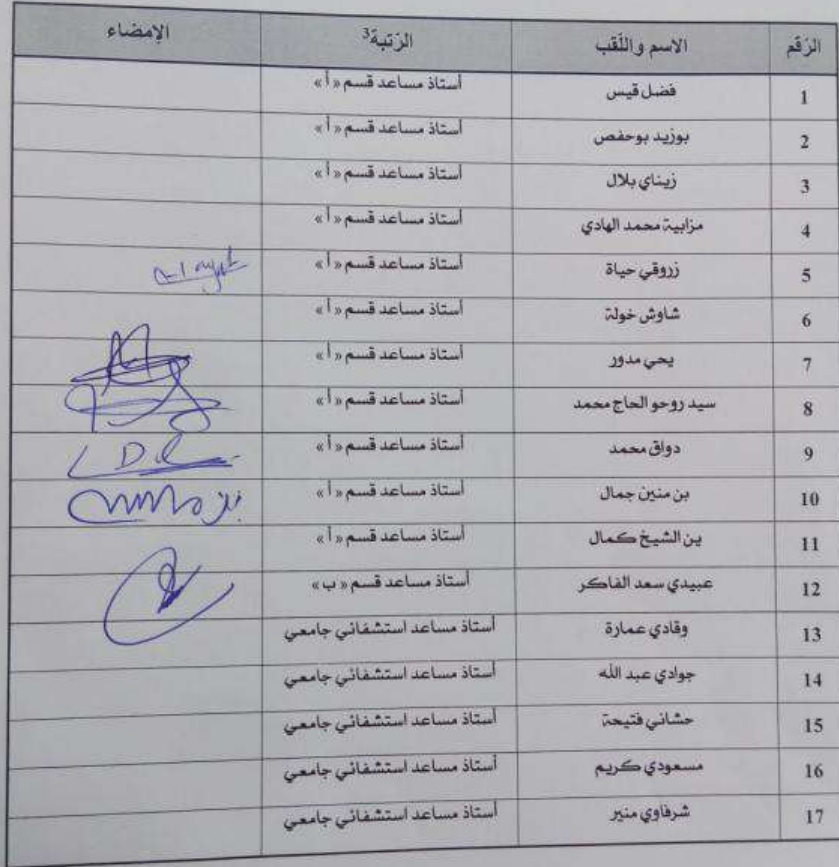 الرّقم الاسم واللّقب الرّتبة3 الإمضاء
1 فضل قيس أستاذ مساعد قسم « أ »
2 بوزيد بوحفص أستاذ مساعد قسم « أ »
3 زيناي بلال أستاذ مساعد قسم « أ »
4 مزابية محمد الهادي أستاذ مساعد قسم « أ »
5 زروقي حياة أستاذ مساعد قسم « أ »
6 شاوش خولة أستاذ مساعد قسم « أ »
7 يحي مدور أستاذ مساعد قسم « أ »
8 سيد روحو الحاج محمد أستاذ مساعد قسم « أ »
9 دواق محمد أستاذ مساعد قسم « أ »
10 بن منين جمال أستاذ مساعد قسم « أ »
11 بن الشيخ كمال أستاذ مساعد قسم « أ »
12 عبيدي سعد الفاكر أستاذ مساعد قسم « ب »
13 وقادي عمارة أستاذ مساعد استشفائي جامعي
14 جوادي عبد الله أستاذ مساعد استشفائي جامعي
15 حشاني فتيحة أستاذ مساعد استشفائي جامعي
16 مسعودي كريم أستاذ مساعد استشفائي جامعي
17 شرفاوي منير أستاذ مساعد استشفائي جامعي